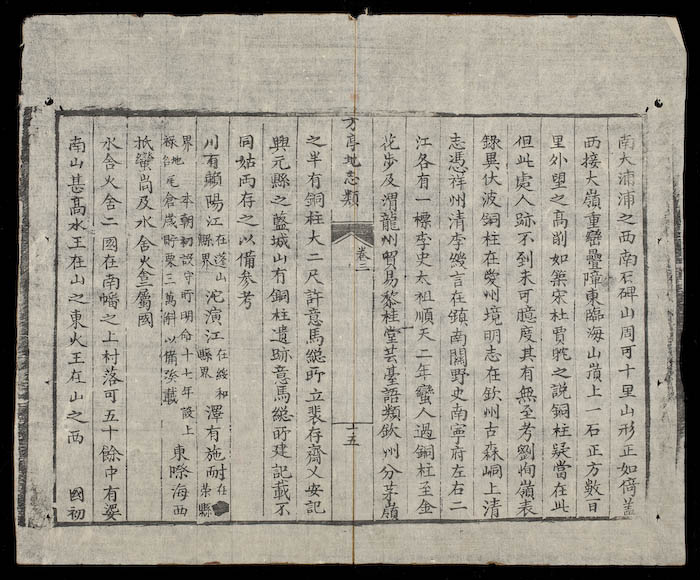 南大浦浦之西南石碑山周可十里山形正如倚蓋
西接大嶺重巒疊障東臨海山嶺上一石正方數百
里外望之高削如築宋杜賈之説銅柱疑當在此
但此處人跡不到未可臆度其有無至考劉恂嶺表
錄異伏波銅柱在愛州境明志在欽州古森峒上清
志馮祥州清李言在鎮南關野史南寧府左右二
江各有一標李史太祖順天二年蠻人過銅柱至金
花步及渭龍州貿易黎桂堂芸臺語類欽州分茅嶺
方亭地志類 卷三 十五
之半有銅柱大二尺許意馬緫所立裴存齋乂安記
興元縣之藍城山有銅柱遺跡意馬緫所建記載不
同姑両存之以備參考
川有籟陽江在蓬山縣界沱演江在綏和縣界澤有施耐在縣
界地本朝初設守明命十七年設上屯倉歲貯粟三萬斛以備湊載東際海西
抵蠻尚及水舍火舍屬國
水舍火舍二國在南幡之上村落可五十餘中有婆
南山甚高水王在山之東火王在山之西 國初